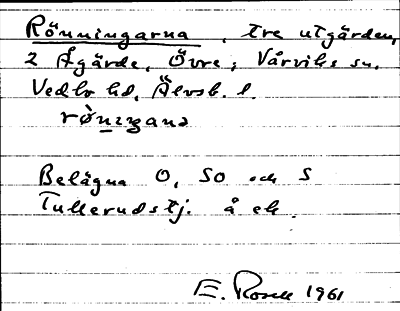 Rönningarna, tre utgärden,
2 Ågärde, Övre, Vårviks sn.
Vedbo hd, Älvsb. l.
rò̀niŋana
Belägna O, SO och S
Tullerudstj. å ek.
E. Rosell 1961